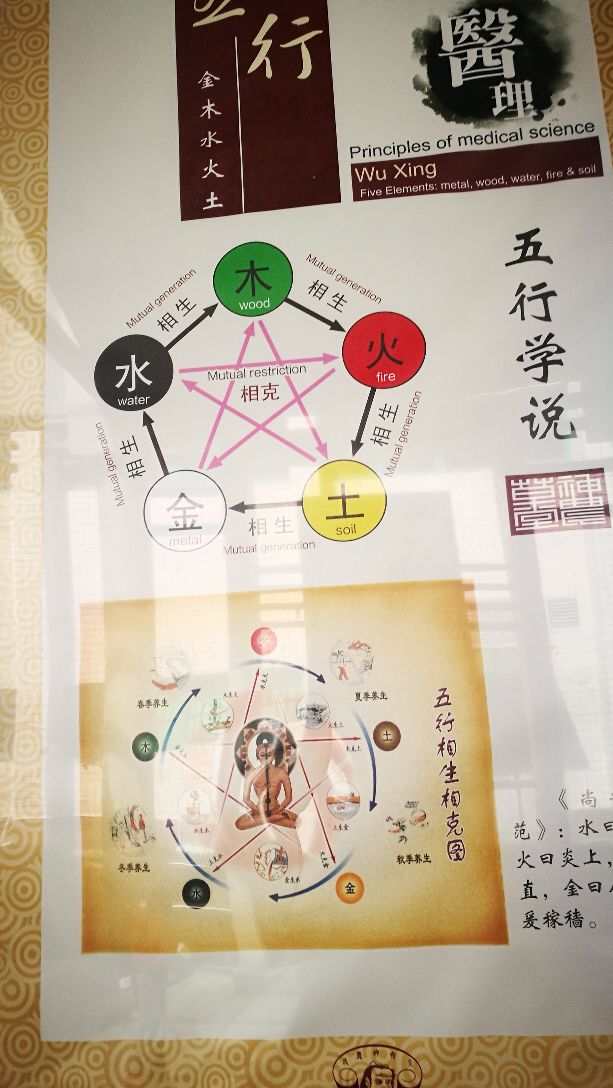 五行
金木水火土
醫
理
Principles of medical science
Wu Xing
Five Elements: metal, wood, water, fire & soil
五行学说
木
wood
Mutual generation
相生
Mutual generation
相生
水
water
火
fire
Mutual restriction
相克
相生
Mutual generation
Mutual generation
相生
金
metal
土
soil
相生
Mutual generation
五行相生相克图
火
春季养生
夏季养生
木
土
冬季养生
秋季养生
水
金
《尚
范》：水曰
火曰炎上，
直，金曰
爰稼穑。